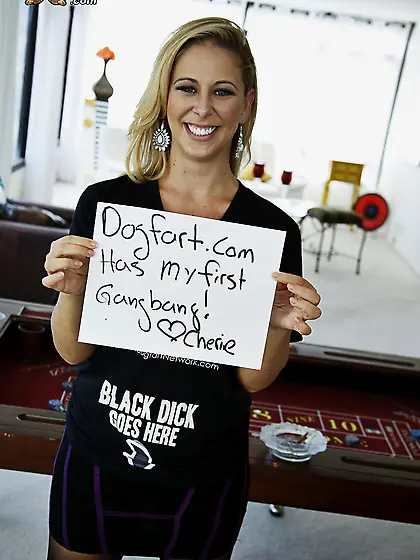 .com
Dogfart.com
Has my first
Gangbang!
♡Cherie
BLACK DICK
GOES HERE
8
10